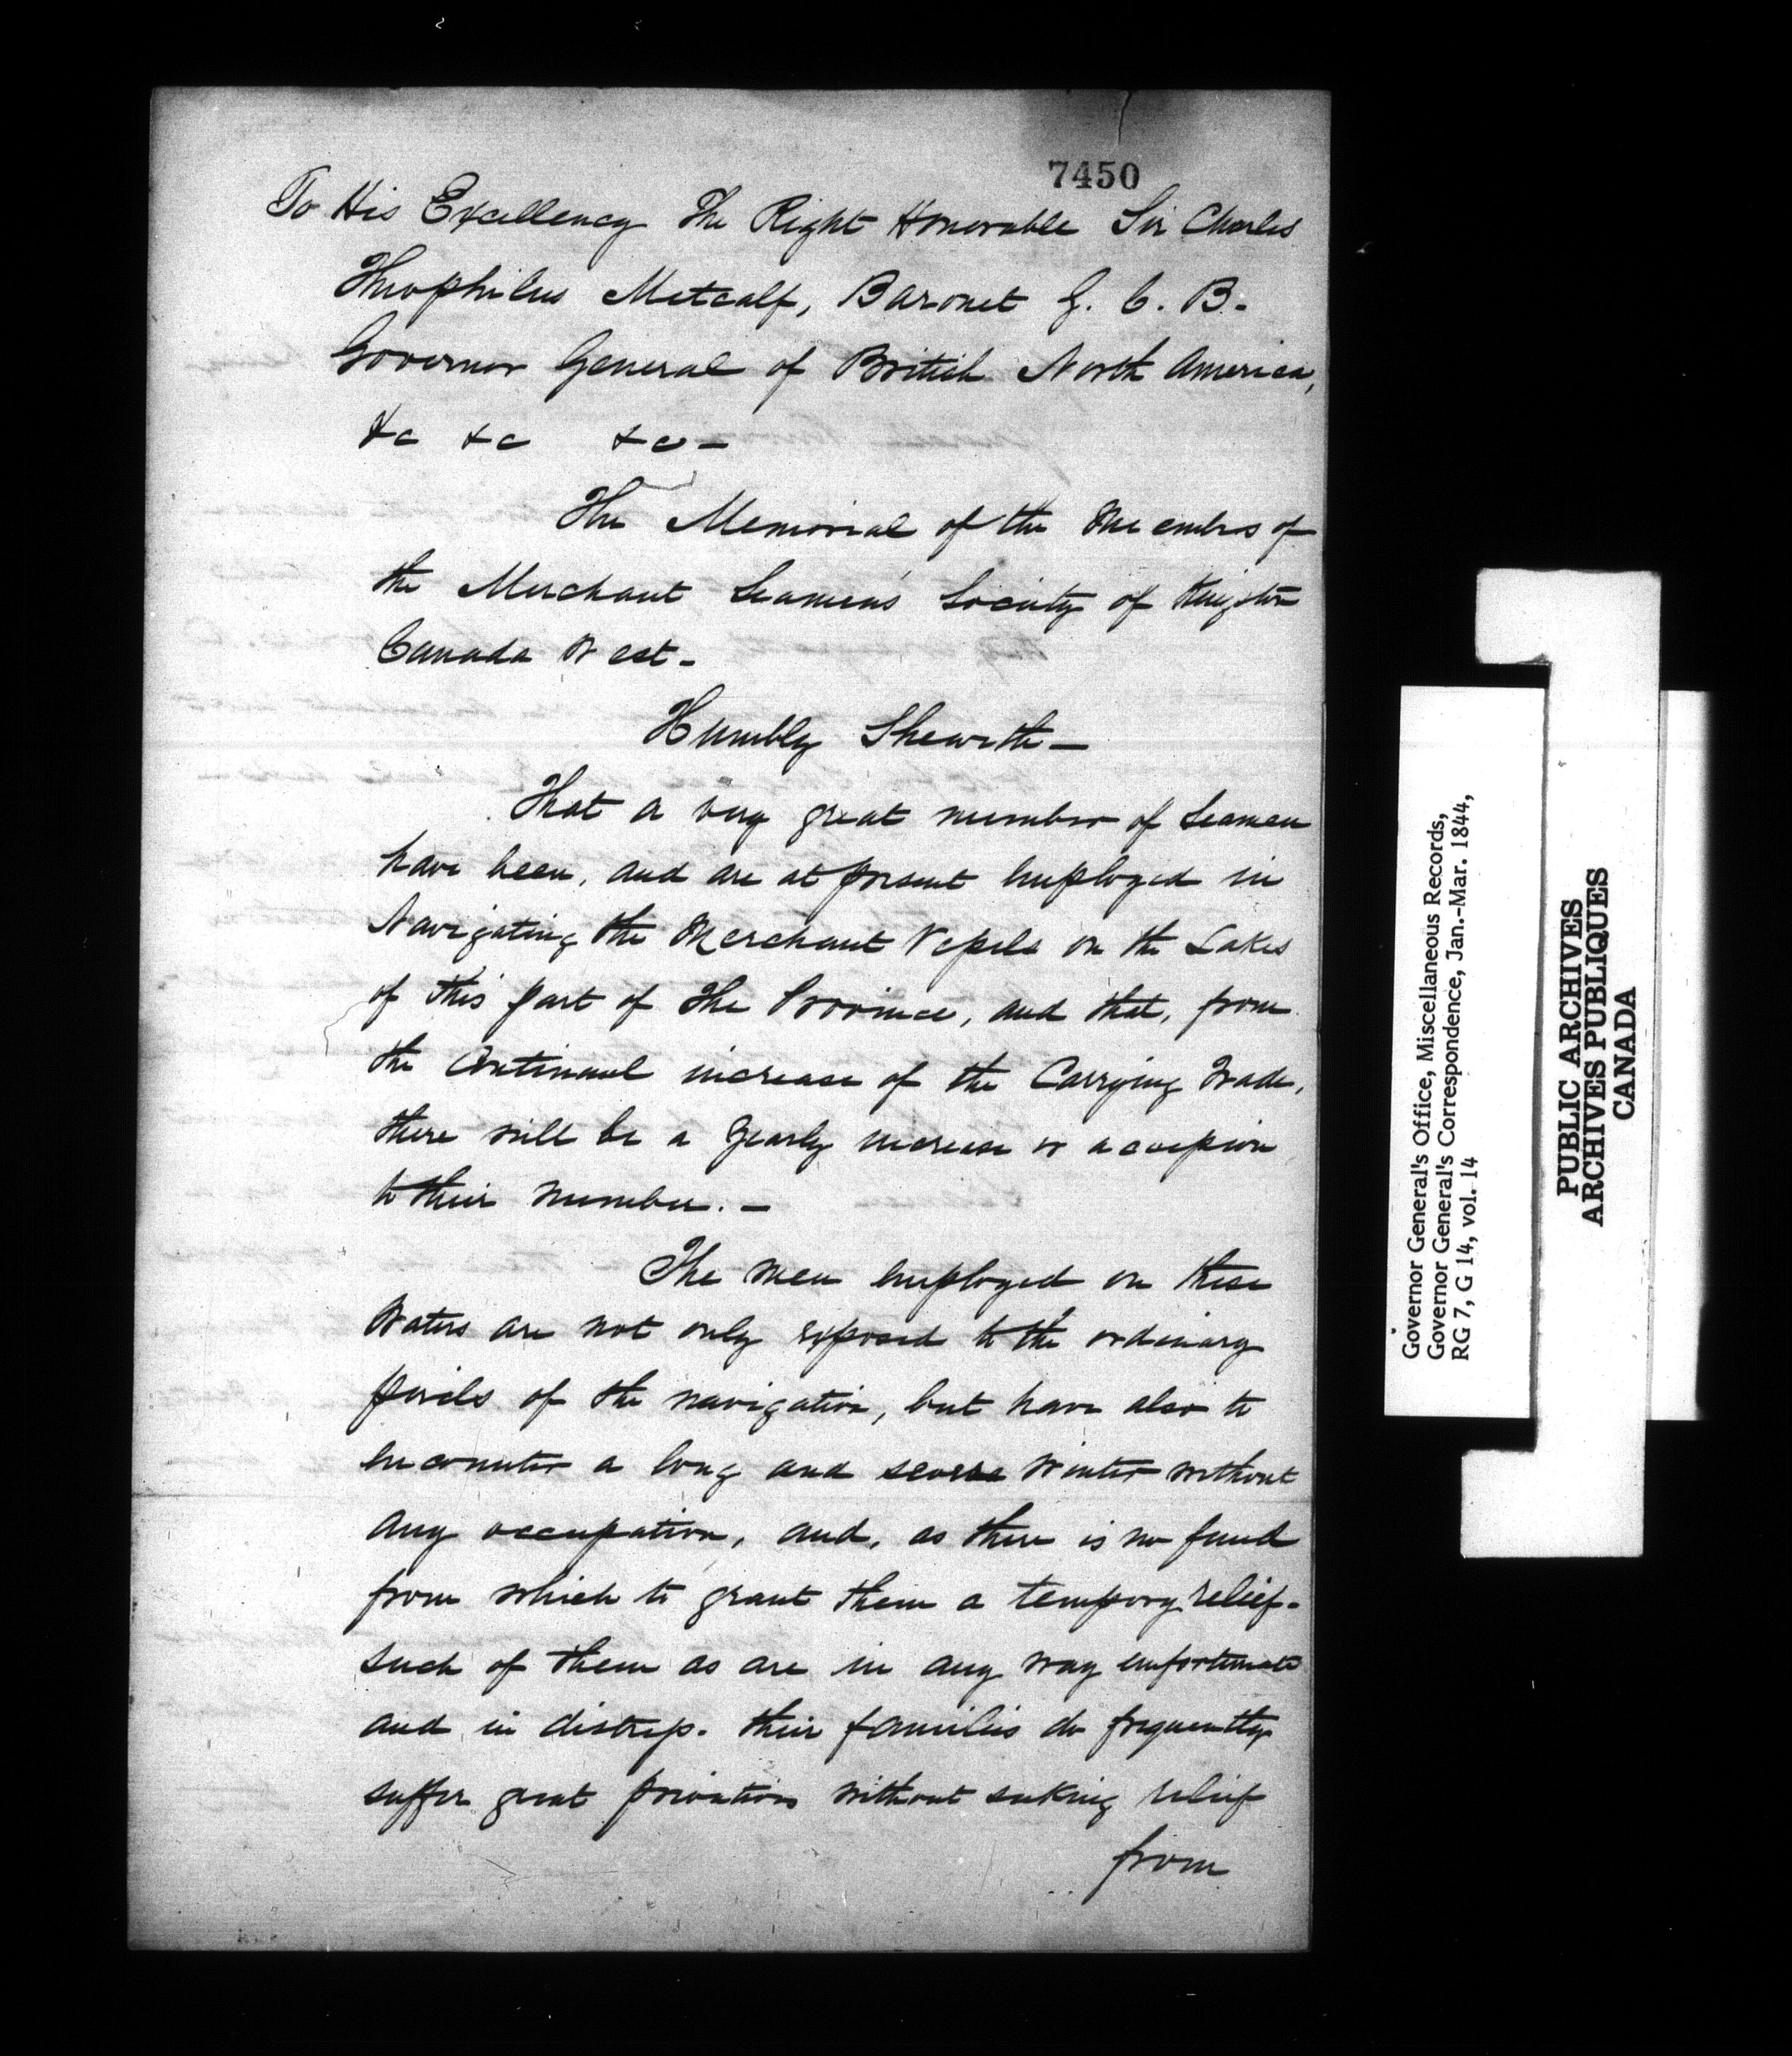 7450
To His Excellency The Right Honorable Sir Charles
Theophilus Metcalf, Baronet G. C. B.
Governor General of British North America,
&c &c &c -
The Memorial of the Members of
the Merchant Seamen's Society of Kingston
Canada West -
Humbly Sheweth -
That a very great number of Seamen
have been, and are at present employed in
Navigating the Merchant Vessels on the Lakes
of this part of the Province, and that, from
the Continual increase of the Carrying Trade,
there will be a yearly increase or accession
to their number. -
The men employed on these
Waters are not only exposed to the ordinary
perils of the navigation, but have also to
encounter a long and severe Winter without
any occupation, and, as there is no fund
from which to grant them a tempory relief -
such of them as are in any way unfortunate
and in distress. their families do frequently
suffer great privations without seeking relief
from
Governor General's Office, Miscellaneous Records,
Governor General's Correspondence, Jan.-Mar. 1844,
RG 7, G 14, vol. 14
PUBLIC ARCHIVES
ARCHIVES PUBLIQUES
CANADA